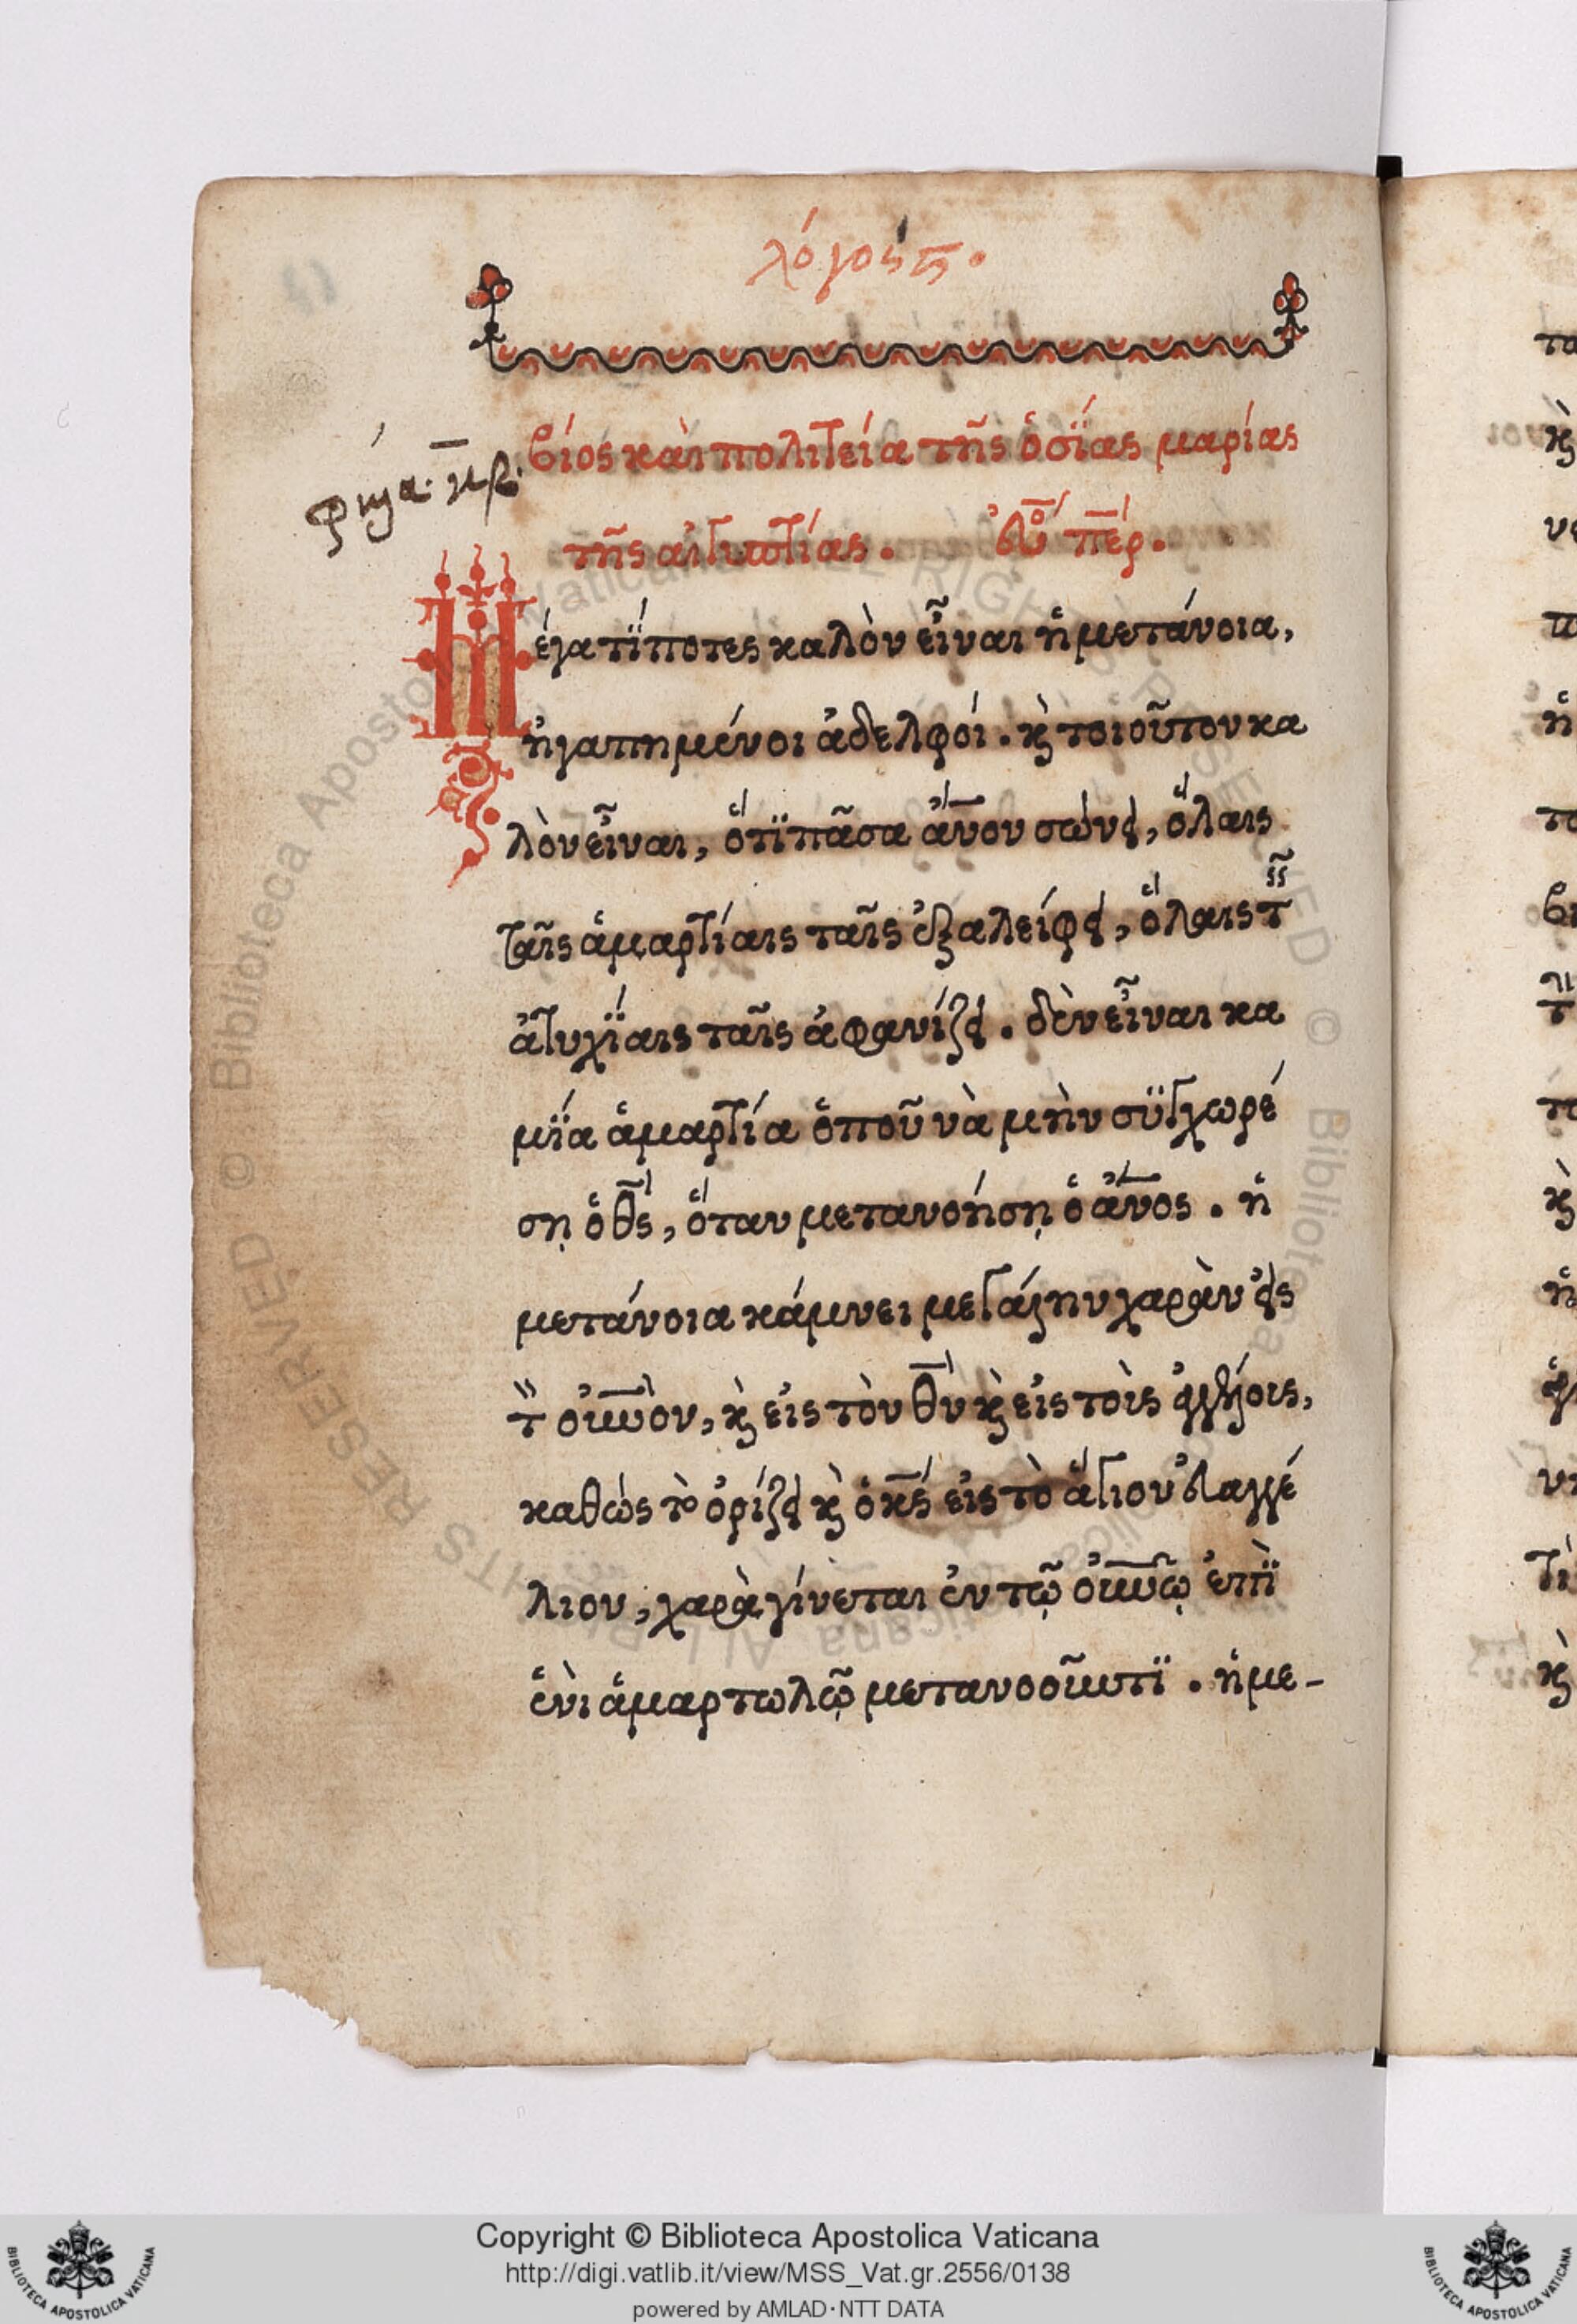 λόγος ϛ̅.
βίος καὶ πολιτεία τῆς ὁσΐας μαρίας
τῆς αἰγυπτίας. εὐ̅ πε̅ρ.
Μέγα τΐποτες καλὸν εἶναι ἡ μετάνοια,
ἠγαπημένοι ἀδελφοί. κ̀ τοιοῦτον κα
λὸν εἶναι, ὅτϊ πᾶσα ἄν̅ον σώνει, ὅλαις
ταῖς ἁμαρτίαις ταῖς ἐξαλείφει, ὅλαις τ
ἀτυχΐαις ταῖς ἀφανίζει. δὲν εἶναι κα
μΐα ἁμαρτία ὁποῦ νὰ μὴν σϋγχωρέ
σῃ ὁ θ̅ς, ὅταν μετανοήσῃ ὁ ἄν̅ος. ἡ
μετάνοια κάμνει μεγάλην χαρὰν εἰς
τ οὐ̅νον, κ̀ εἰς τὸν θ̅ν κ̀ εἰς τοὶς ἀγγέλοις,
καθὼς τὸ ὁρίζει κ̀ ὁ κ̅ς εἰς τὸ ἅγιον εὐαγγέ
λιον, χαρὰ γίνεται ἐν τῷ οὐ̅νῷ ἐπῒ
ἑνὶ ἁμαρτωλῷ μετανοοῦντϊ. ἡ με-
Copyright © Biblioteca Apostolica Vaticana
http://digi.vatlib.it/view/MSS_Vat.gr.2556/0138
powered by AMLAD·NTT DATA
BIBLIOTECA APOSTOLICA VATICANA
BIBLIOTECA APOSTOLICA VATICANA